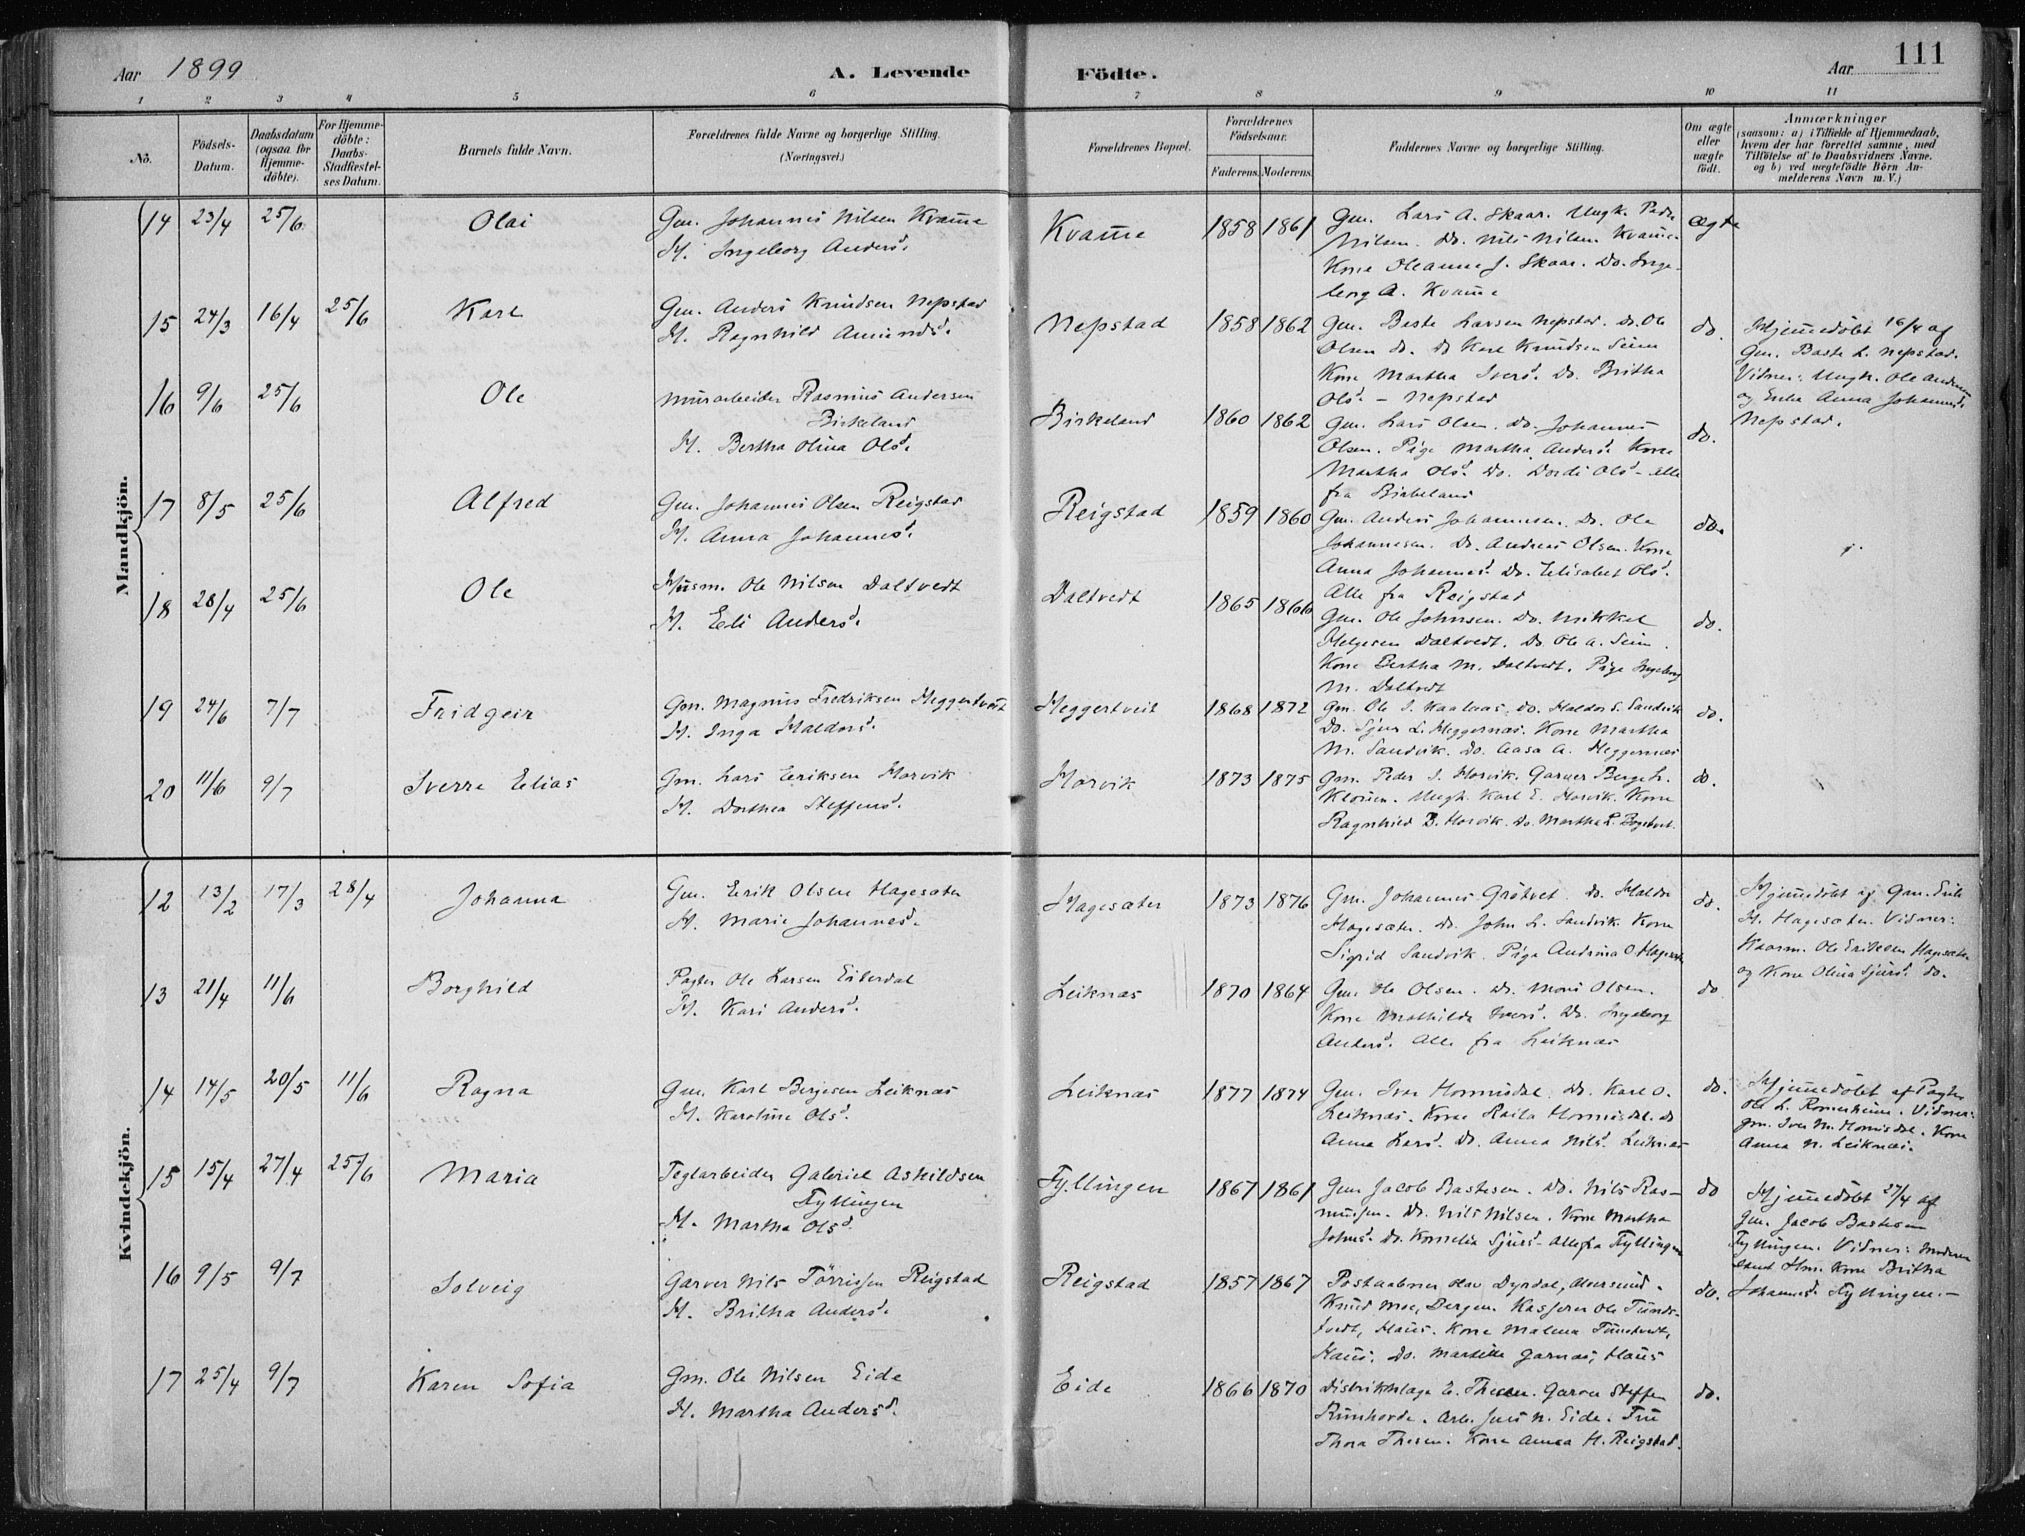 Aar 1899
A. Levende
Födte.
Aar
111
1 2 3 4 5 6 7 8 9 10 11
No.
Födsels-Datum.
Daabsdatum (ogsaa for Hjemme-döbte).
For Hjemme-döbte: Daabs-Stadfæstel-ses Datum.
Barnets fulde Navn.
Forældrenes fulde Navne og borgerlige Stilling.
(Næringsvei.)
Forældrenes Bopæl.
Forældrenes Födselsaar.
Faderens. Moderens.
Faddernes Navne og borgerlige Stilling.
Om ægte eller uægte födt.
Anmærkninger
(saasom: a) i Tilfælde af Hjemmedaab,
hvem der har forrettet samme, med
Tilföielse af to Daabsvidners Navne,
og b) ved uægtefödte Börn An-
melderens Navn m. V.)
Mandkjön.
14 23/4 25/6 Olai
Gm. Johannes Nilsen Kvamme
H. Ingeborg Andersd.
Kvamme 1858 1861
Gm. Lars A. Skaar. Ungk. Peder
Nilsen. Do. Nils Nilsen Kvamme.
Kone Oleanna J. Skaar. Do. Inge-
borg A. Kvamme
ægte
15 24/3 16/4 25/6 Karl
Gm. Anders Knudsen Nepstad
H. Ragnhild Amundsd.
Nepstad 1858 1862
Gm. Baste Larsen Nepstad. Do. Ole
Olsen do. Do Karl Knudsen Seim
Kone Martha Iversd. Do. Britha
Olsd. - Nepstad
do.
Hjemmedöbt 16/4 af
Gm. Baste L. Nepstad.
Vidner: Ungk. Ole Andersen
og Enke Anna Johannesd.
Nepstad.
16 9/6 25/6 Ole
Murarbeider Rasmus Andersen
Birkeland
H. Bertha Olina Olsd.
Birkeland 1860 1862
Gm. Lars Olsen. Do. Johannes
Olsen. Pige Martha Andersd. Kone
Martha Olsd. Do. Dordi Olsd - alle
fra Birkeland
do.
17 8/5 25/6 Alfred
Gm. Johannes Olsen Reigstad
H. Anna Johannesd.
Reigstad 1859 1860
Gm. Anders Johannesen. Do. Ole
Johannesen. Do. Andreas Olsen. Kone
Anna Johannesd. Do. Elisabet Olsd.
Alle fra Reigstad
do.
18 28/4 25/6 Ole
Husm. Ole Nilsen Daltvedt
H. Eli Andersd.
Daltvedt 1865 1866
Gm. Ole Johnsen. Do. Mikkel
Helgesen Daltvedt. Do Ole A. Seim.
Kone Bertha M. Daltvedt. Pige Ingeborg
M. Daltvedt
do.
19 24/6 7/7 Fridgeir
Gm. Magnus Fredriksen Heggertveit
H. Inga Haldorsd.
Heggertveit 1868 1872
Gm. Ole S. Kaalaas. Do. Haldor S. Sandvik
Do. Sjur L. Heggernæs. Kone Martha
M. Sandvik. Do. Aasa A. Heggernæs
do.
20 11/6 9/7 Sverre Elias
Gm. Lars Eriksen Horvik
H. Dorthea Steffensd.
Horvik 1873 1875
Gm. Peder J. Horvik. Garver Berge L.
Ungk. Karl E. Horvik. Kone
Ragnhild B. Horvik. Do. Martha L.
do.
Kvindekjön.
12 13/2 17/3 28/4 Johanna
Gm. Erik Olsen Hagesæter
H. Marie Johannesd.
Hagesæter 1873 1876
Gm. Johannes Grötvet. Do. Haldor
Hagesæter. Do. John L. Sandvik. Kone
Sigrid Sandvik. Pige Andrina O. Hagesæter
do.
Hjemmedöbt af Gm. Erik
H. Hagesæter. Vidner:
Kaarm. Ole Eriksen Hagesæter
og Kone Olina Sjursd. do.
13 21/4 11/6 Borghild
Pagter Ole Larsen Eikerdal
H. Kari Andersd.
Leiknæs 1870 1864
Gm. Ole Olsen. Do. Mons Olsen.
Kone Mathilde Iversd. Do. Ingeborg
Andersd. Alle fra Leiknæs
do
14 14/5 20/5 11/6 Ragna
Gm. Karl Bergesen Leiknæs
H. Karoline Olsd.
Leiknæs 1877 1874
Gm. Ivar Honnisdal. Do. Karl O.
Leiknæs. Kone Honnisdal. Do
Anna Larsd. Do. Anna Nilsd. Leiknæs
do.
Hjemmedöbt af Pagter
Ole L. Romerheim. Vidner:
Gm. Iver M. Honnisdal. Kone
Anna N. Leiknæs.
15 15/4 27/4 25/6 Maria
Teglarbeider Gabriel Askildsen
Fyllingen
H. Martha Olsd.
Fyllingen 1867 1861
Gm. Jacob Bastesen. Do. Nils Ras-
mussen. Do. Nils Nilsen. Kone Martha
Johnsd. Do. Kornelia Sjursd - Alle fra Fyllingen
do
Hjemmedöbt 27/4 af
Gm. Jacob Bastesen
Fyllingen. Vidner: Moderen
samt Kone Britha
Johannesd. Fyllingen. -
16 9/5 9/7 Solveig
Garver Nils Törrissen Reigstad
H. Britha Andersd.
Reigstad 1857 1867
Postaabner Olav Dyrdal, Alversund.
Knud Moe, Bergen. Kasserer Ole Tunds-
tvedt, Haus. Kone Malena Tunstvedt,
Haus. Do. Garnæs, Haus
do.
17 25/4 9/7 Karen Sofia
Gm. Ole Nilsen Eide
H. Martha Andersd.
Eide 1866 1870
Distriktslæge E. Thesen. Garver Steffen
Rumhovde. Arb. Jens N. Eide. Fru
Thora Thesen. Kone Anna H. Reigstad.
do.